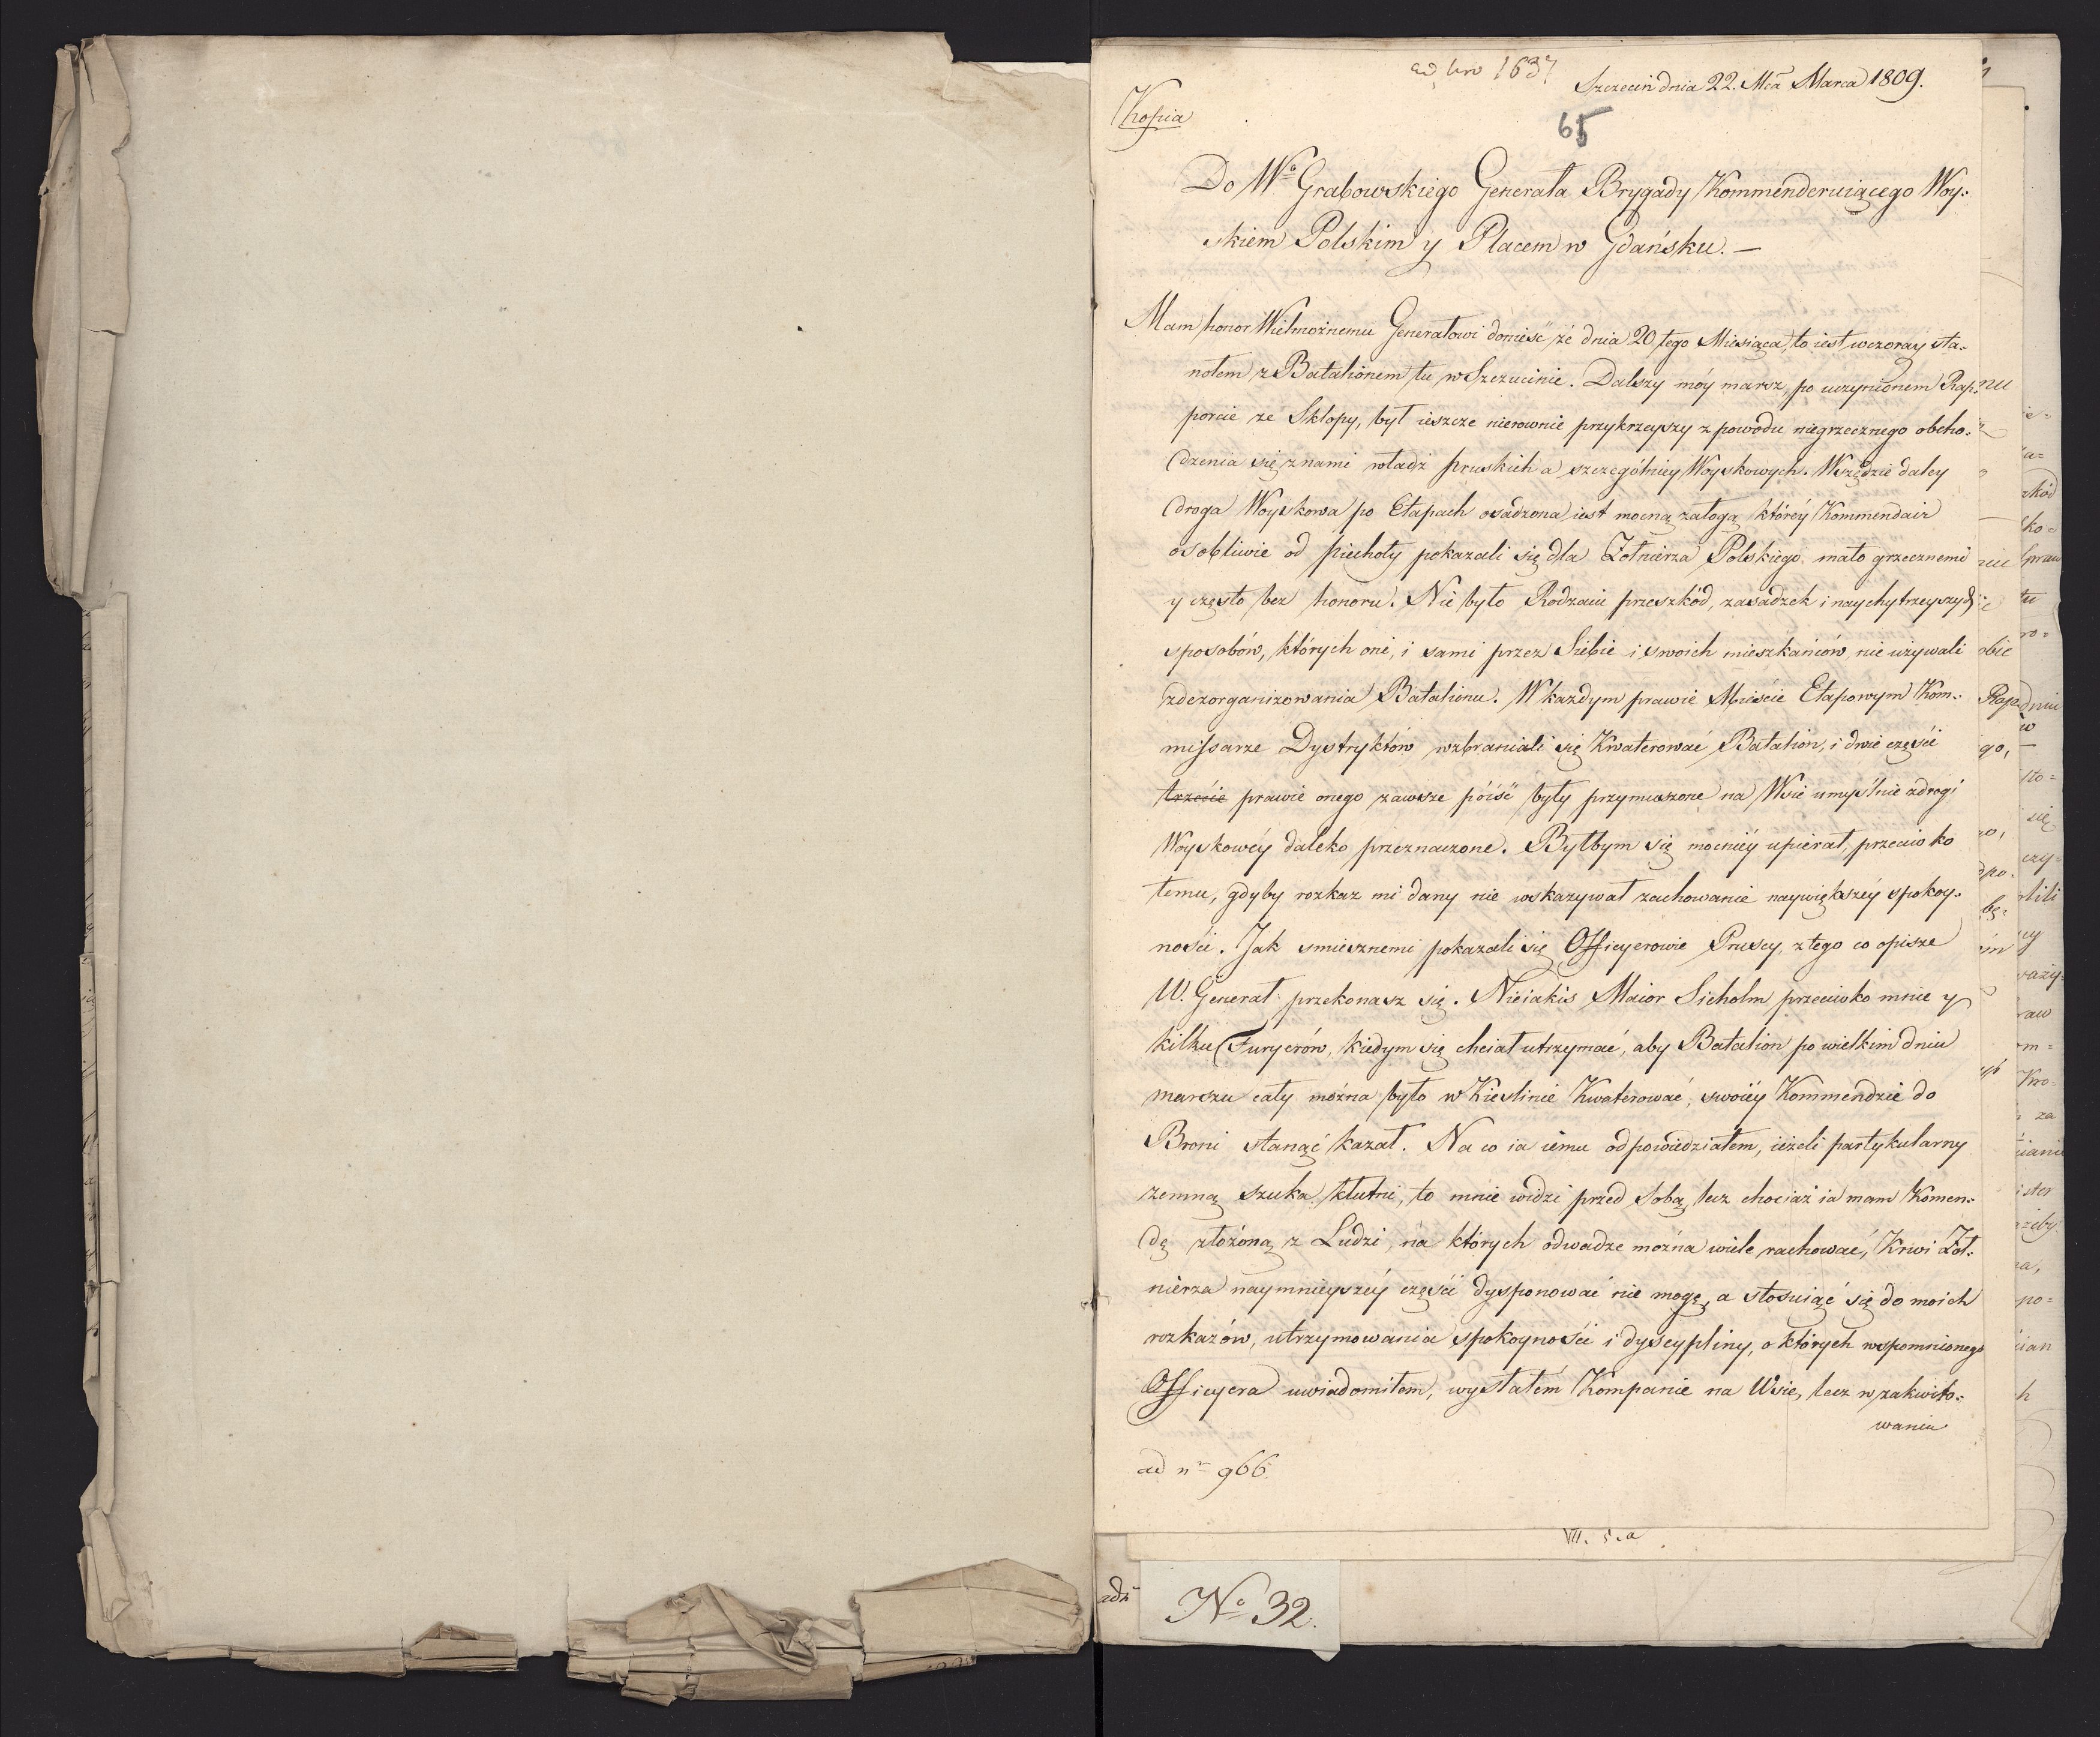 ad Nro 1637
Szczecin dnia 22. Mca Marca 1809.
Kopia
65
Do Wo Grabowskiego Generała Brygady Kommenderuiącego Woy:
skiem Polskim y Placem w Gdańsku. —
Mam honor Wielmożnemu Generałowi donieść że dnia 20 tego Miesiąca, to iest wczoray sta:
nołem z Batalionem tu w Szczucinie. Dalszy móy marsz, po uczynionem Rap:
porcie ze Sklopy, był ieszcze nierownie przykrzeyszy z powodu niegrzecznego obcho:
dzenia się z nami władz pruskich a szczególniey Woyskowych. Wszędzie daley
droga Woyskowa po Etapach osadzona iest mocną załogą któréy Kommendair
osobliwie od piechoty pokazali się dla Żołnierza Polskiego mało grzecznemi
y często bez honoru. Nie było Rodzaiu przeszkód, zasadzek i naychytrzeyszych
sposobów, których oni, i sami przez Siebie i swoich mieszkańców nie używali
zdezorganizowania Batalionu. W każdym prawie Mieście Etapowym Kom:
missarze Dystryktów wzbraniali się Kwaterować Batalion, i dwie części
trzecie prawie onego zawsze póiść były przymuszone na Wsie umyślnie z drogi
Woyskowéy daleko przeznaczone. Byłbym się mocniéy upierał, przeciwko
temu, gdyby rozkaz mi dany nie wskazywał zachowanie naywiększéy spokoy:
ności. Jak smiesznemi pokazali się Officyerowie Pruscy, z tego co opisze
W. Generał przekonasz się. Nieiakiś Maior Sicholm przeciwko mnie y
kilku Furyerów, kiedym się chciał utrzymać, aby Batalion po wielkim dniu
marszu cały można było w Kieslinie Kwaterować, swoiéy Kommendzie do
Broni stanąć kazał. Na co ia iemu odpowiedziałem, ieżeli partykularny
zemną szuka kłutni, to mnie widzi przed Sobą, lecz chociaż ia mam Komen:
dę złożoną z Ludzi, na których odwadze można wiele rachować, Krwi Żoł:
nierza naymnieyszéy części dysponować nie mogę, a stosuiąć się do moich
rozkazów, utrzymowania spokoyności i dyscypliny, o których wspomnionego
Officyera uwiadomiłem, wysłałem Kompanie na Wsie, lecz w zakwito:
waniu
ad nr 966.
VII. 5.a
adn
No 32.